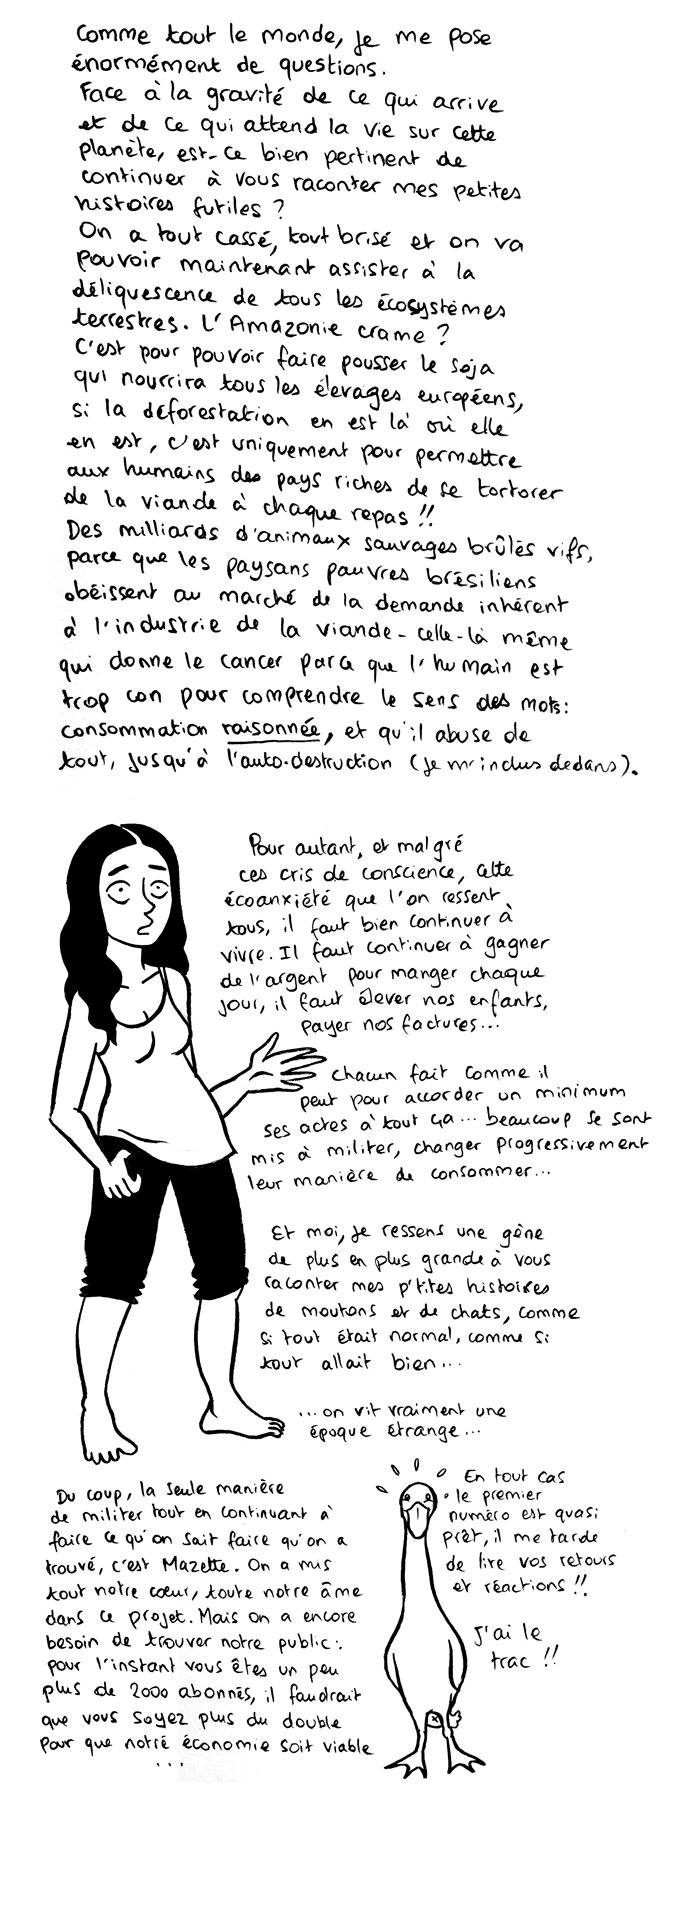 Comme tout le monde, je me pose
énormément de questions.
Face à la gravité de ce qui arrive
et de ce qui attend la vie sur cette
planète, est-ce bien pertinent de
continuer à vous raconter mes petites
histoires futiles ?
On a tout cassé, tout brisé et on va
pouvoir maintenant assister à la
déliquescence de tous les écosystèmes
terrestres. L'Amazonie crame ?
C'est pour pouvoir faire pousser le soja
qui nourrira tous les élevages européens,
si la déforestation en est là où elle
en est, c'est uniquement pour permettre
aux humains des pays riches de se tortorer
de la viande à chaque repas !!
Des milliards d'animaux sauvages brûlés vifs,
parce que les paysans pauvres brésiliens
obéissent au marché de la demande inhérent
à l'industrie de la viande - celle-là même
qui donne le cancer parce que l'humain est
trop con pour comprendre le sens des mots :
consommation raisonnée, et qu'il abuse de
tout, jusqu'à l'auto-destruction (je m'inclus dedans).
Pour autant, et malgré
ces cris de conscience, cette
écoanxiété que l'on ressent
tous, il faut bien continuer à
vivre. Il faut continuer à gagner
de l'argent pour manger chaque
jour, il faut élever nos enfants,
payer nos factures...
Chacun fait comme il
peut pour accorder un minimum
ses actes à tout ça... beaucoup se sont
mis à militer, changer progressivement
leur manière de consommer...
Et moi, je ressens une gêne
de plus en plus grande à vous
raconter mes p'tites histoires
de moutons et de chats, comme
si tout était normal, comme si
tout allait bien...
...on vit vraiment une
époque étrange...
Du coup, la seule manière
de militer tout en continuant à
faire ce qu'on sait faire qu'on a
trouvé, c'est Mazette. On a mis
tout notre cœur, toute notre âme
dans ce projet. Mais on a encore
besoin de trouver notre public :
pour l'instant vous êtes un peu
plus de 2000 abonnés, il faudrait
que vous soyez plus du double
pour que notre économie soit viable
...
En tout cas
le premier
numéro est quasi
prêt, il me tarde
de lire vos retours
et réactions !!
J'ai le
trac !!